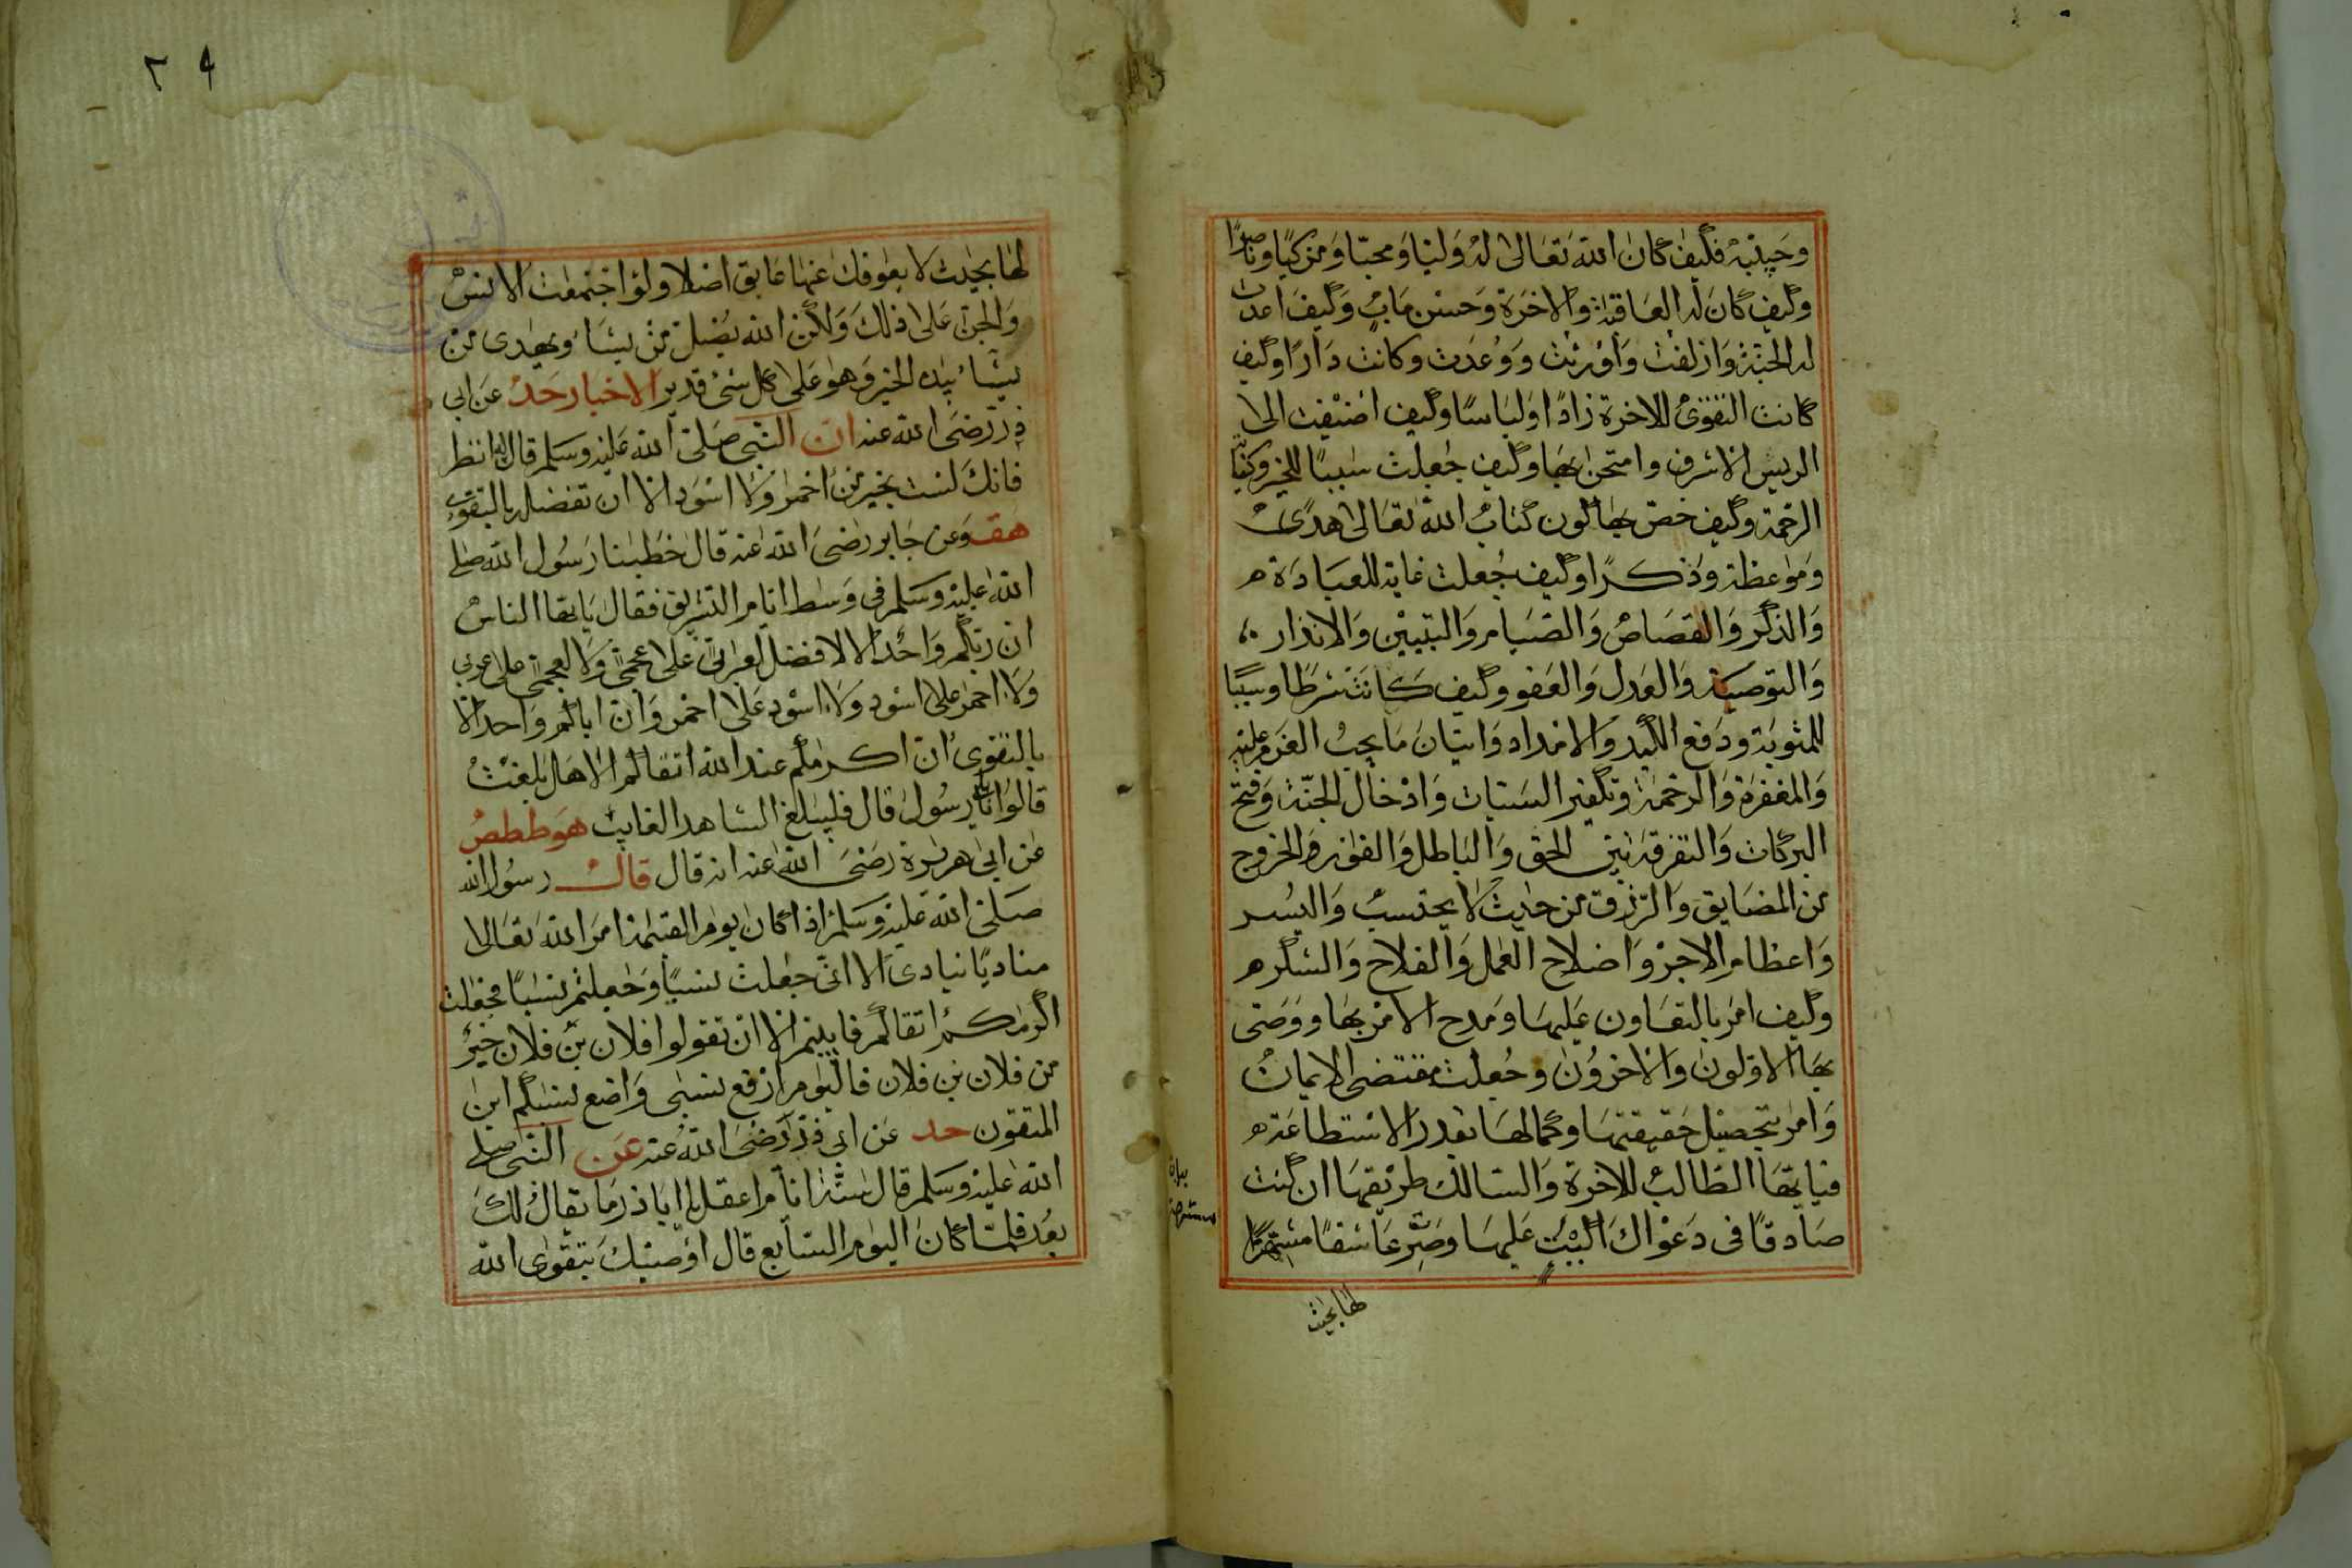 وحينئذ فكيف كان الله تعالى له وليا ومحبا ومزكيا وناصرا
وكيف كان له العاقبة والاخرة وحسن ماب وكيف اعدت
له الجنة وازلفت واورثت ووعدت وكانت دارا وكيف
كانت التقوى للاخرة زادا ولباسا وكيف اضيفت الى
الريس الاشرف وامتحن بها وكيف جعلت سببا للخير وكتابة
الرحمة وكيف خص بها كون كتاب الله تعالى هدى
وموعظة وذكرا وكيف جعلت غاية للعبادة
والذكر والقصاص والصيام والتبيين والانذار
والتوصية والعدل والعفو وكيف كانت شرطا وسببا
للمثوبة ودفع الكيد والامداد واتيان ما يجب العزم عليه
والمغفرة والرحمة وتكفير السيئات وادخال الجنة وفتح
البركات والتفرقة بين الحق والباطل والفوز والخروج
من المضايق والرزق من حيث لا يحتسب واليسر
واعظام الاجر واصلاح العمل والفلاح والشكر
وكيف امر بالتعاون عليها ومدح الامر بها ووصى
بها الاولون والاخرون وجعلت مقتضى الايمان
وامر بتحصيل حقيقتها وكمالها بقدر الاستطاعة
فيا ايها الطالب للاخرة والسالك طريقها ان كنت
صادقا في دعواك اكبب عليها وصر عاشقا مستهترا
لها بحيث
لها بحيث لا يعوقك عنها عايق اصلا ولو اجتمعت الانس
والجن على ذلك ولكن الله يضل من يشاء ويهدى من
يشاء بيده الخير وهو على كل شئ قدير الاخبار حد عن ابي
ذر رضى الله عنه ان النبي صلى الله عليه وسلم قال له انظر
فانك لست بخير من احمر ولا اسود الا ان تفضله بالتقوى
هق وعن جابر رضى الله عنه قال خطبنا رسول الله صلى
الله عليه وسلم في وسط ايام التشريق فقال يا يها الناس
ان ربكم واحد الا لا فضل لعربي على عجمي ولا لعجمي على عربي
ولا احمر على اسود ولا اسود على احمر وان اباكم واحد الا
بالتقوى ان اكرمكم عند الله اتقاكم الا هل بلغت
قالوا بلى يا رسول الله قال فليبلغ الشاهد الغايب هو ططص
عن ابي هريرة رضى الله عنه انه قال قال رسول الله
صلى الله عليه وسلم اذا كان يوم القيمة امر الله تعالى
مناديا ينادى الا انى جعلت نسبا وجعلتم نسبا فجعلت
اكرمكم اتقاكم فابيتم الا ان تقولوا فلان بن فلان خير
من فلان بن فلان فاليوم ارفع نسبى واضع نسبكم اين
المتقون حد عن ابي ذر رضى الله عنه عن النبي صلى
الله عليه وسلم قال ستة ايام اعقل يا ابا ذر ما يقال لك
بعد فلما كان اليوم السابع قال اوصيك بتقوى الله